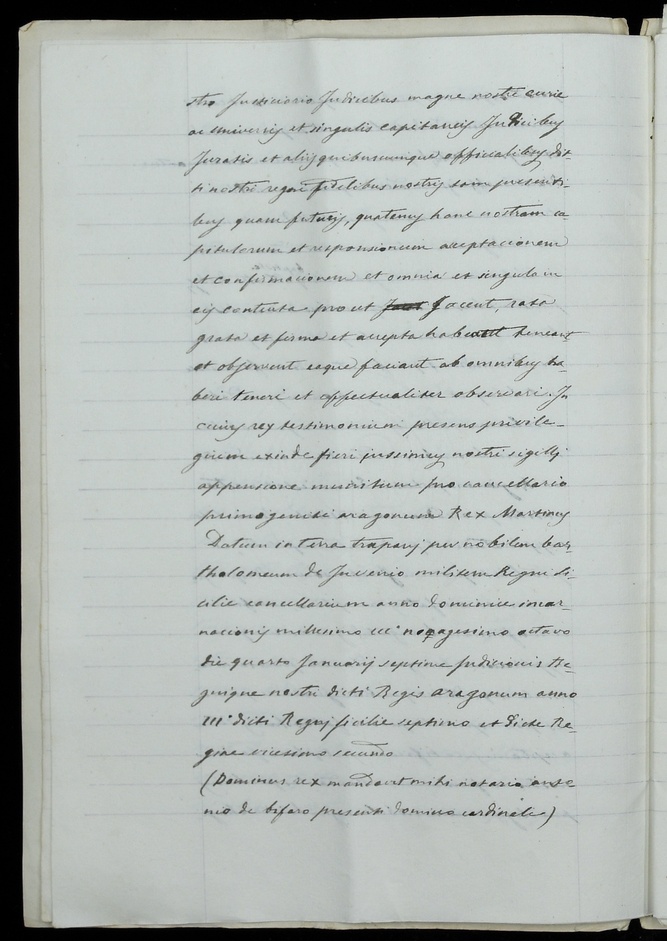 stro Justiciario Judicibus magne nostre curie
ac universis et singulis capitaneis Judicibus
Juratis et alijs quibuscumque officialibus dit-
ti nostri regni fidelibus nostris tam presenti-
bus quam futuris, quatenus hanc nostram ca
pitulorum et responsionum acceptacionem
et confirmacionem et omnia et singula in
eis contenta prout jacent, rata
grata et ferma et accepta habeant teneant
et observent eaque faciant ab omnibus ha-
beri teneri et effectualiter observari. In
cuius rey testimonium presens privile-
gium exinde fieri jussimus nostri sigilli
appensione munitum pro cancellario
primogeniti aragonum Rex Martinus
Datum in terra trapani per nobilem bar-
tholomeum de Juvenio militem Regni Si-
cilie cancellarium anno dominice incar-
nacionis millesimo iii° nonagesimo octavo
die quarto Januarij septime Indicionis Re-
gnique nostri dicti Regis aragonum anno
iii° dicti Regni sicilie septimo et dicte Re-
gine vicesimo secundo
(Dominus rex mandavit mihi notario
nio de bifaro presenti domino cardinale)